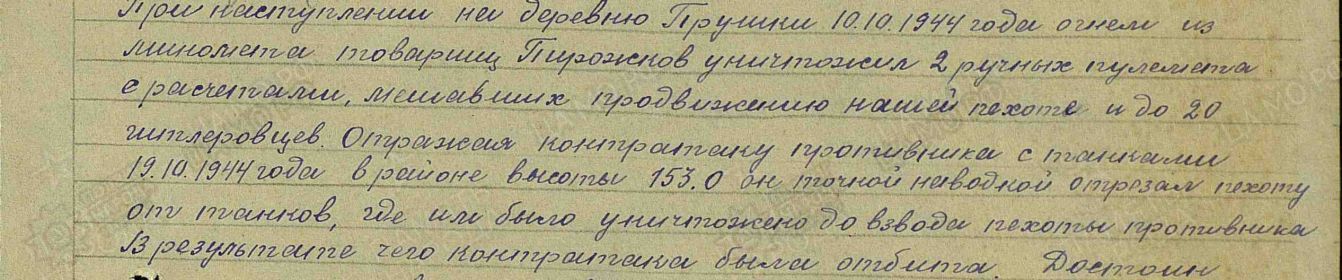 При наступлении на деревню Прушки 10.10.1944 года огнем из
миномета товарищ Пирожков уничтожил 2 ручных пулемета
с расчетами, мешавших продвижению нашей пехоте и до 20
гитлеровцев. Отражая контратаку противника с танками
19.10.1944 года в районе высоты 153.0 он точной наводкой отрезал пехоту
от танков, где им было уничтожено до взвода пехоты противника
В результате чего контратака была отбита. Достоин